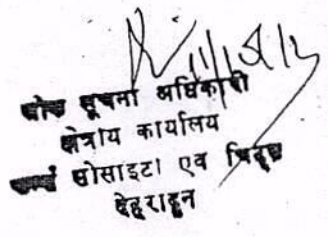 लोक सूचना अधिकारी
क्षेत्रीय कार्यालय
फर्म्स सोसाइटी एवं चिट्स
देहरादून